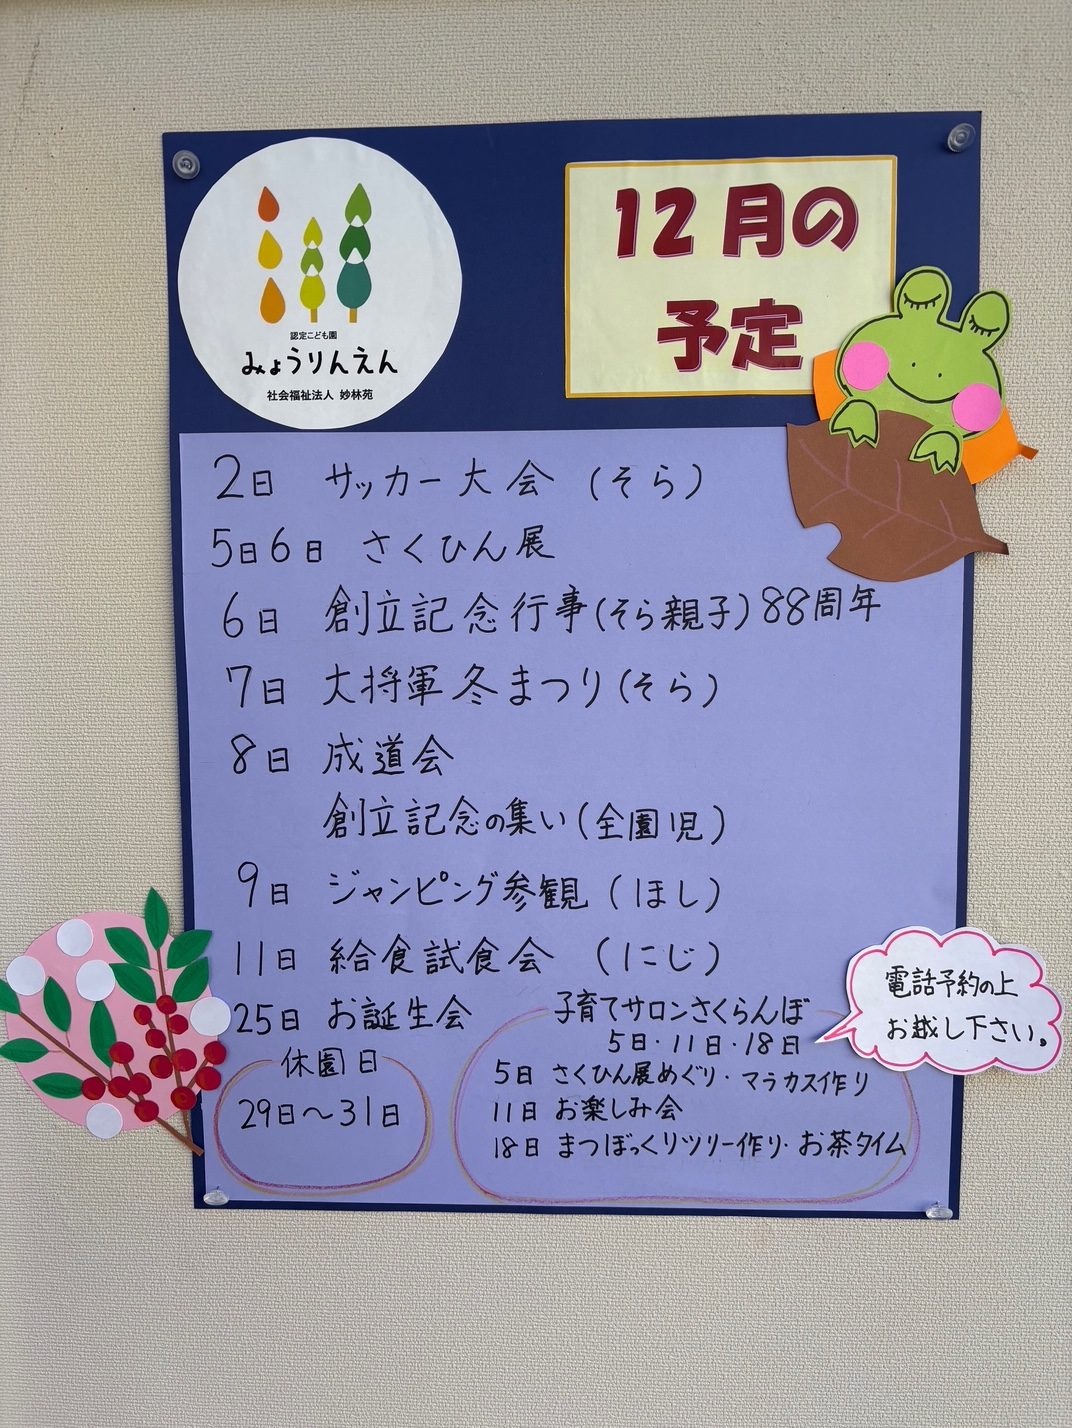 認定こども園
みょうりんえん
社会福祉法人 妙林苑
12月の
予定
2日 サッカー大会 (そら)
5日6日 さくひん展
6日 創立記念行事(そら親子)88周年
7日 大将軍冬まつり(そら)
8日 成道会
創立記念の集い(全園児)
9日 ジャンピング参観 (ほし)
11日 給食試食会 (にじ)
25日 お誕生会
休園日
29日〜31日
子育てサロンさくらんぼ
5日・11日・18日
5日 さくひん展めぐり・マラカス作り
11日 お楽しみ会
18日 まつぼっくりツリー作り・お茶タイム
電話予約の上
お越し下さい。